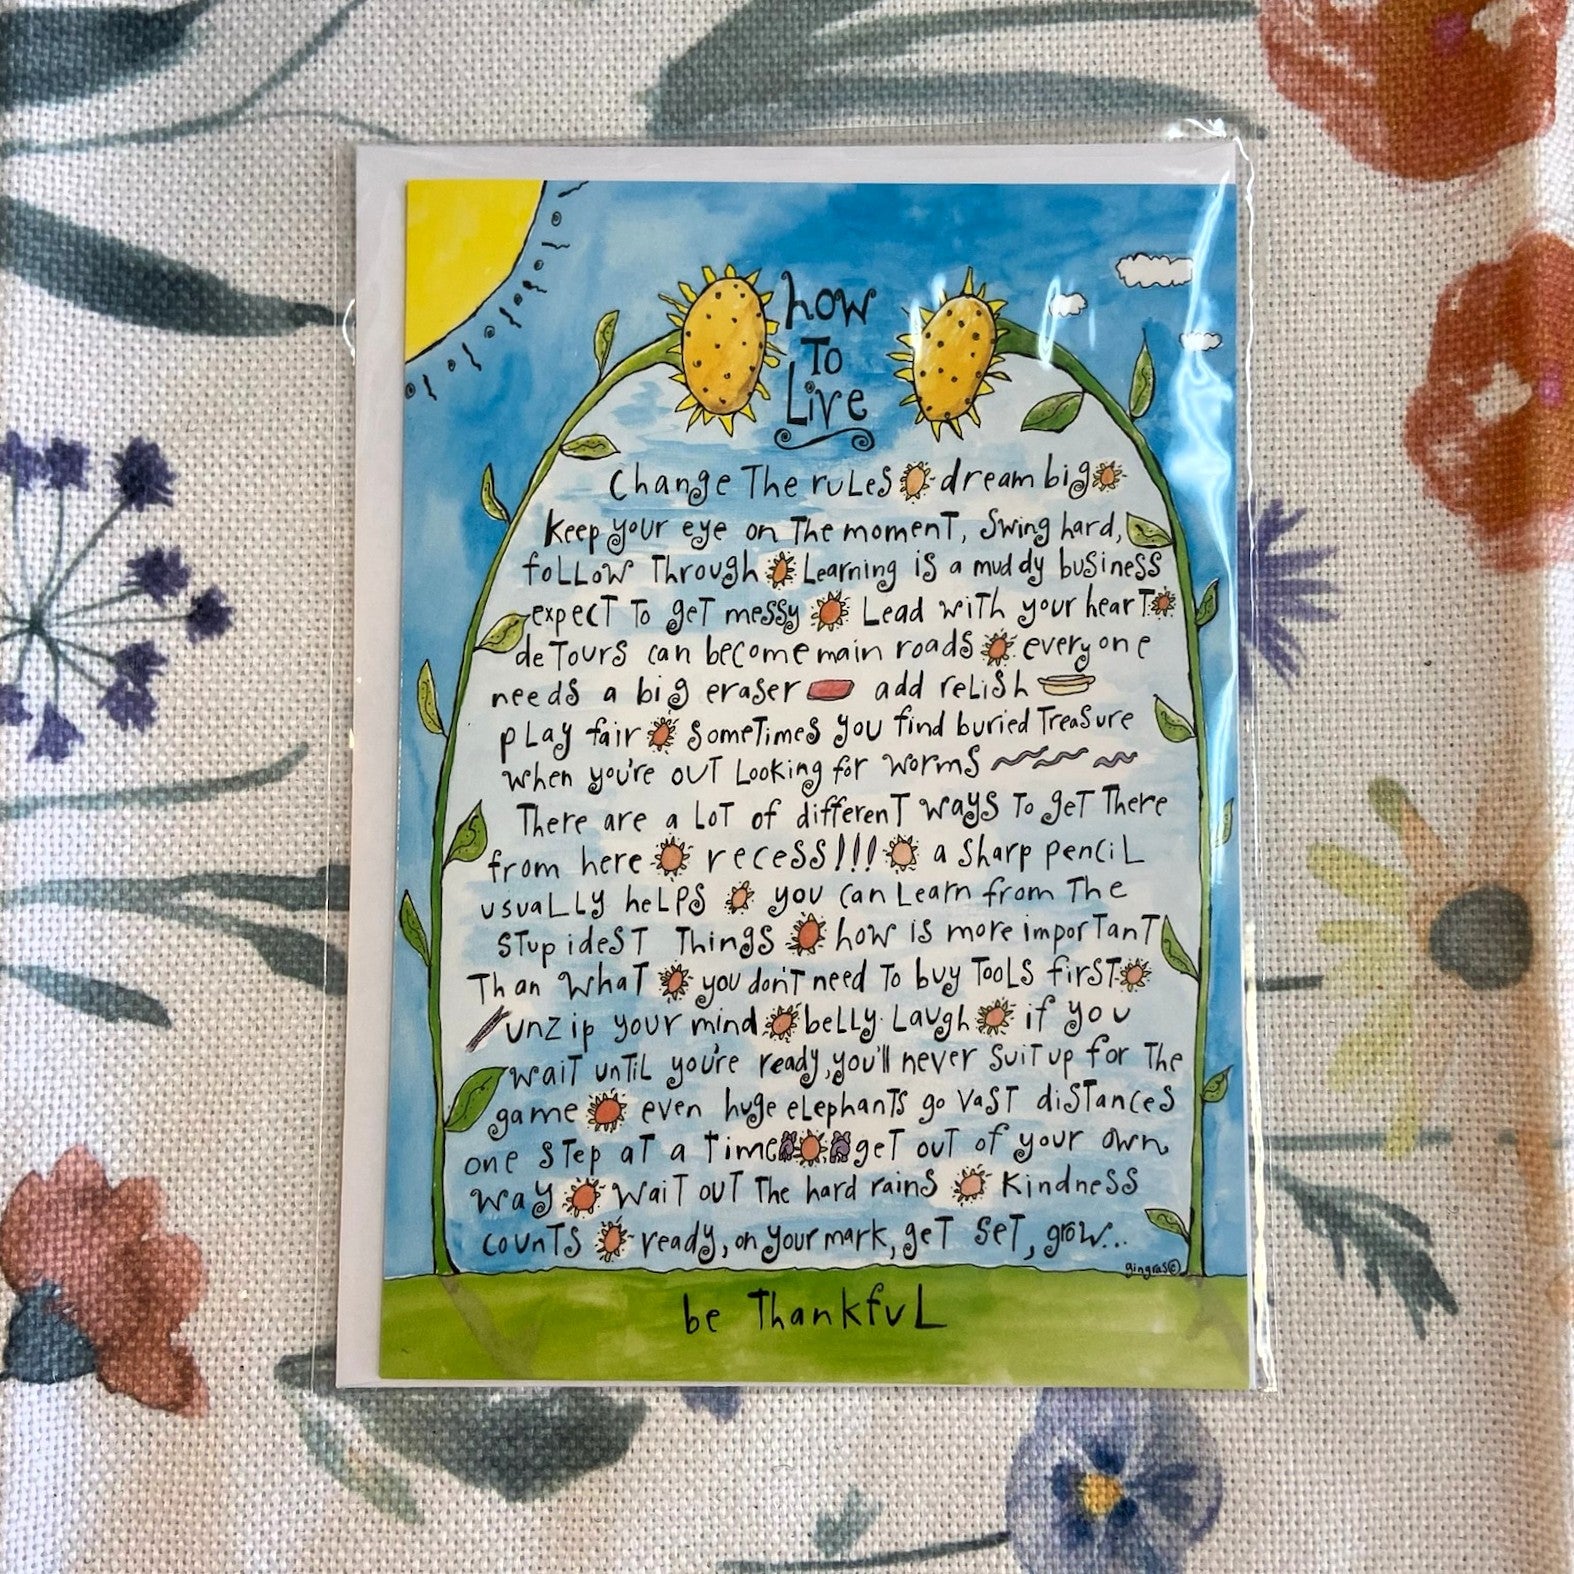 how
To
Live
Change The ruLes dream big
keep your eye on The momenT, Swing hard,
foLLow Through Learning is a muddy business
expecT To geT messy Lead wiTh your hearT
deTours can become main roads everyone
needs a big eraser add reLiSh
pLay fair SomeTimes you find buried TreaSure
when you're ouT Looking for wormS
There are a LoT of differenT wayS To geT There
from here recess!!! a Sharp penciL
usuaLLy heLpS you can Learn from The
STupideST ThingS how is more imporTanT
Than whaT you don'T need To buy TooLS firST
unzip your mind beLLy Laugh if you
waiT unTiL you're ready, you'll never SuiT up for The
game even huge eLephanTs go vasT diSTances
one STep aT a Time geT ouT of your own
way waiT ouT The hard rainS Kindness
counTS ready, on your mark, geT SeT, grow...
gingras©
be ThankfuL